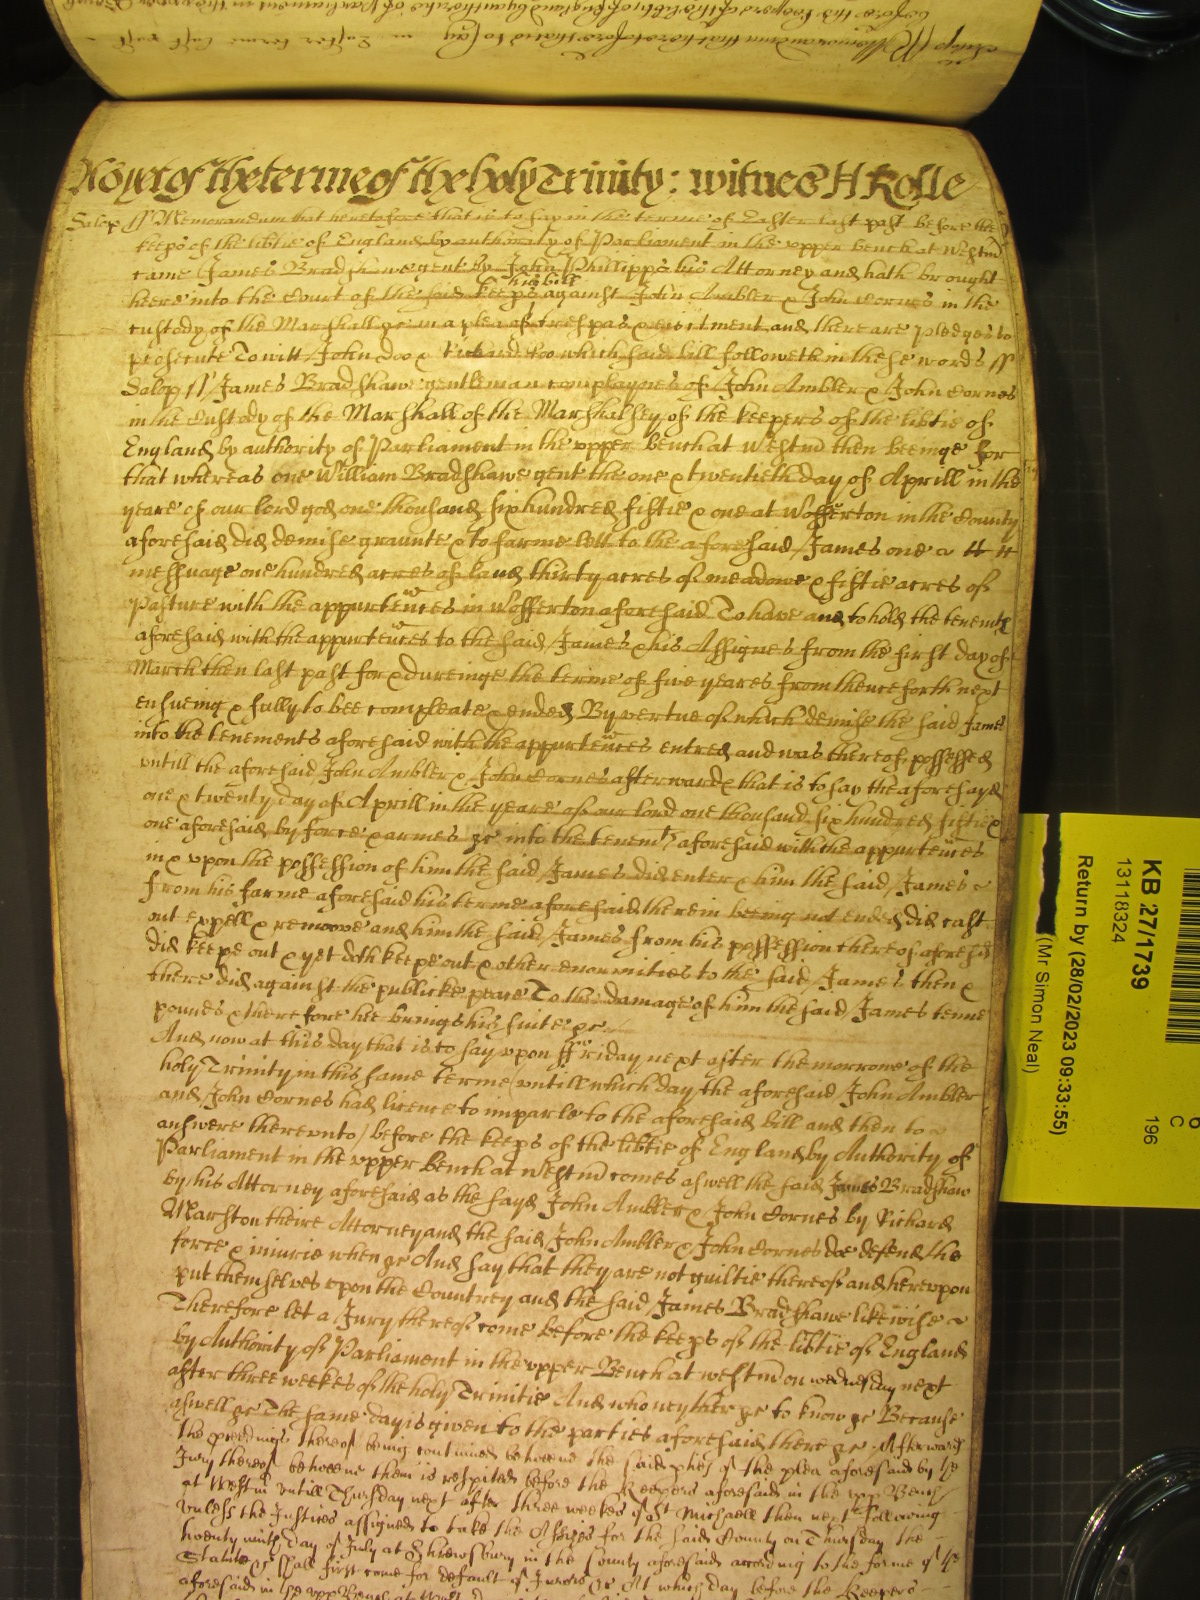 before the keepers of the libtie of England by authoritie of Parliament in the upper Bench
Salop ss Memorandum that heretofore that is to say in Easter terme last past
Yet of the terme of the holy Trinity: witnes H Rolle
Salop ss Memorandum that heretofore that is to say in the terme of Easter last past before the
keeps of the libtie of England by authority of Parliament in the upper bench at Westm
came James Bradshawe gent by John Phillipps his Attorney and hath brought
heere into the Court of the said keeps his bill against John Ambler & John Cornes in the
custody of the Marshall &c in a plea of trespas & eiectment and there are pledges to
prosecute To witt John Doo & Richard Roo which said bill followeth in these words ss
Salop ss James Bradshawe gentleman complaynes of John Ambler & John Cornes
in the Custody of the Marshall of the Marshalsey of the keepers of the libtie of
England by authority of Parliament in the upper bench at Westm then beeinge For
that whereas one William Bradshawe gent the one & twentieth day of Aprill in the
yeare of our lord god one thousand six hundred fiftie & one at Wofferton in the County
aforesaid did demise graunte & to farme lett to the aforesaid James one
messuage one hundred acres of land thirty acres of meadowe & fiftie acres of
Pasture with the appurtennces in Wofferton aforesaid To have and to hold the tenemts
aforesaid with the appurtennces to the said James & his Assignes from the first day of
March then last past for & dureinge the terme of five yeares from thenceforth next
ensueing & fully to bee compleate & ended By vertue of which demise the said James
into the tenements aforesaid with the appurtennces entred and was thereof possessed
untill the aforesaid John Ambler & John Cornes afterwards that is to say the aforesayd
one & twenty day of Aprill in the yeare of our lord one thousand six hundred fiftie &
one aforesaid by force & armes &c into the tenemts aforesaid with the appurtennces
in & upon the possession of him the said James did enter & him the said James
from his farme aforesaid his terme aforesaid therein beeing not ended did cast
out expell & remoove and him the said James from his possession thereof aforesaid
did keepe out & yet doth keepe out & other enormities to the said James then &
there did against the publicke peace To the damage of him the said James tenne
pounds & therefore hee brings his suite &c
And now at this day that is to say upon Friday next after the morrowe of the
holy Trinity in this same terme untill which day the aforesaid John Ambler
and John Cornes had licence to imparle to the aforesaid bill and then to
answere thereunto before the keeps of the libtie of England by Authority of
Parliament in the upper bench at Westm comes aswell the said James Bradshaw
by his Attorney aforesaid as the sayd John Ambler & John Cornes by Richard
Marston theire Attorney and the said John Ambler & John Cornes doe defend the
force & iniurie when &c And say that they are not guiltie thereof and hereupon
put themselves upon the Countrey and the said James Bradshawe likewise
Therefore let a Jury thereof come before the keeps of the libtie of England
by Authority of Parliament in the upper Bench at westm on wednesday next
after three weekes of the holy Trinitie And who neyther &c to know &c Because
aswell &c The same day is given to the parties aforesaid there &c Afterward
the pceedings thereof being continued betweene the said pties of the plea aforesaid by the
Jury thereof betweene them is respited before the Keepers aforesaid in the upp Bench
at Westm untill Thursday next after three weekes of St Michaell then next following
unless the Justices assigned to take the Assizes for the said County on Thursday the
twenty ninth day of July at Shrewsbury in the County aforesaid according to the forme of the
Statute &c shall first come for default of Jurors &c At which day before the Keepers
aforesaid in the upp Bench at Westm
KB 27/1739
13118324
Return by (28/02/2023 09:33:55)
(Mr Simon Neal)
196
C